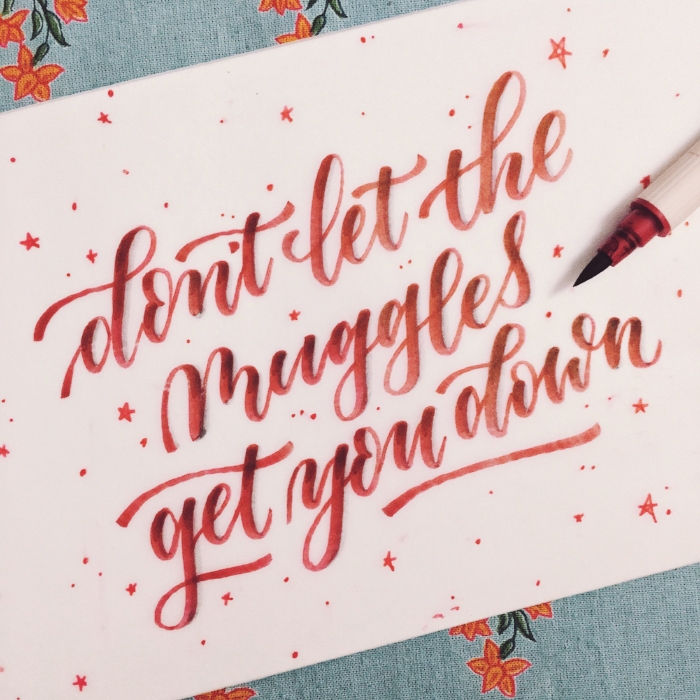 don't let the
muggles
get you down